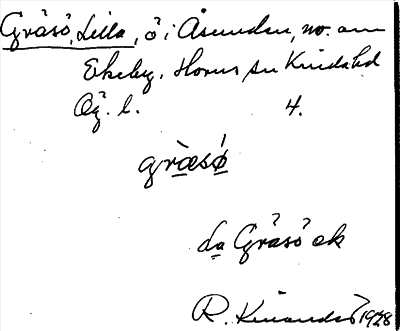 Gräsö, Lilla, ö i Åsunden, no. om
Ekeby. Horns sn Kinda hd
Ög. l. 4.
græ̀sǿ
La Gräsö ek
R. 1928